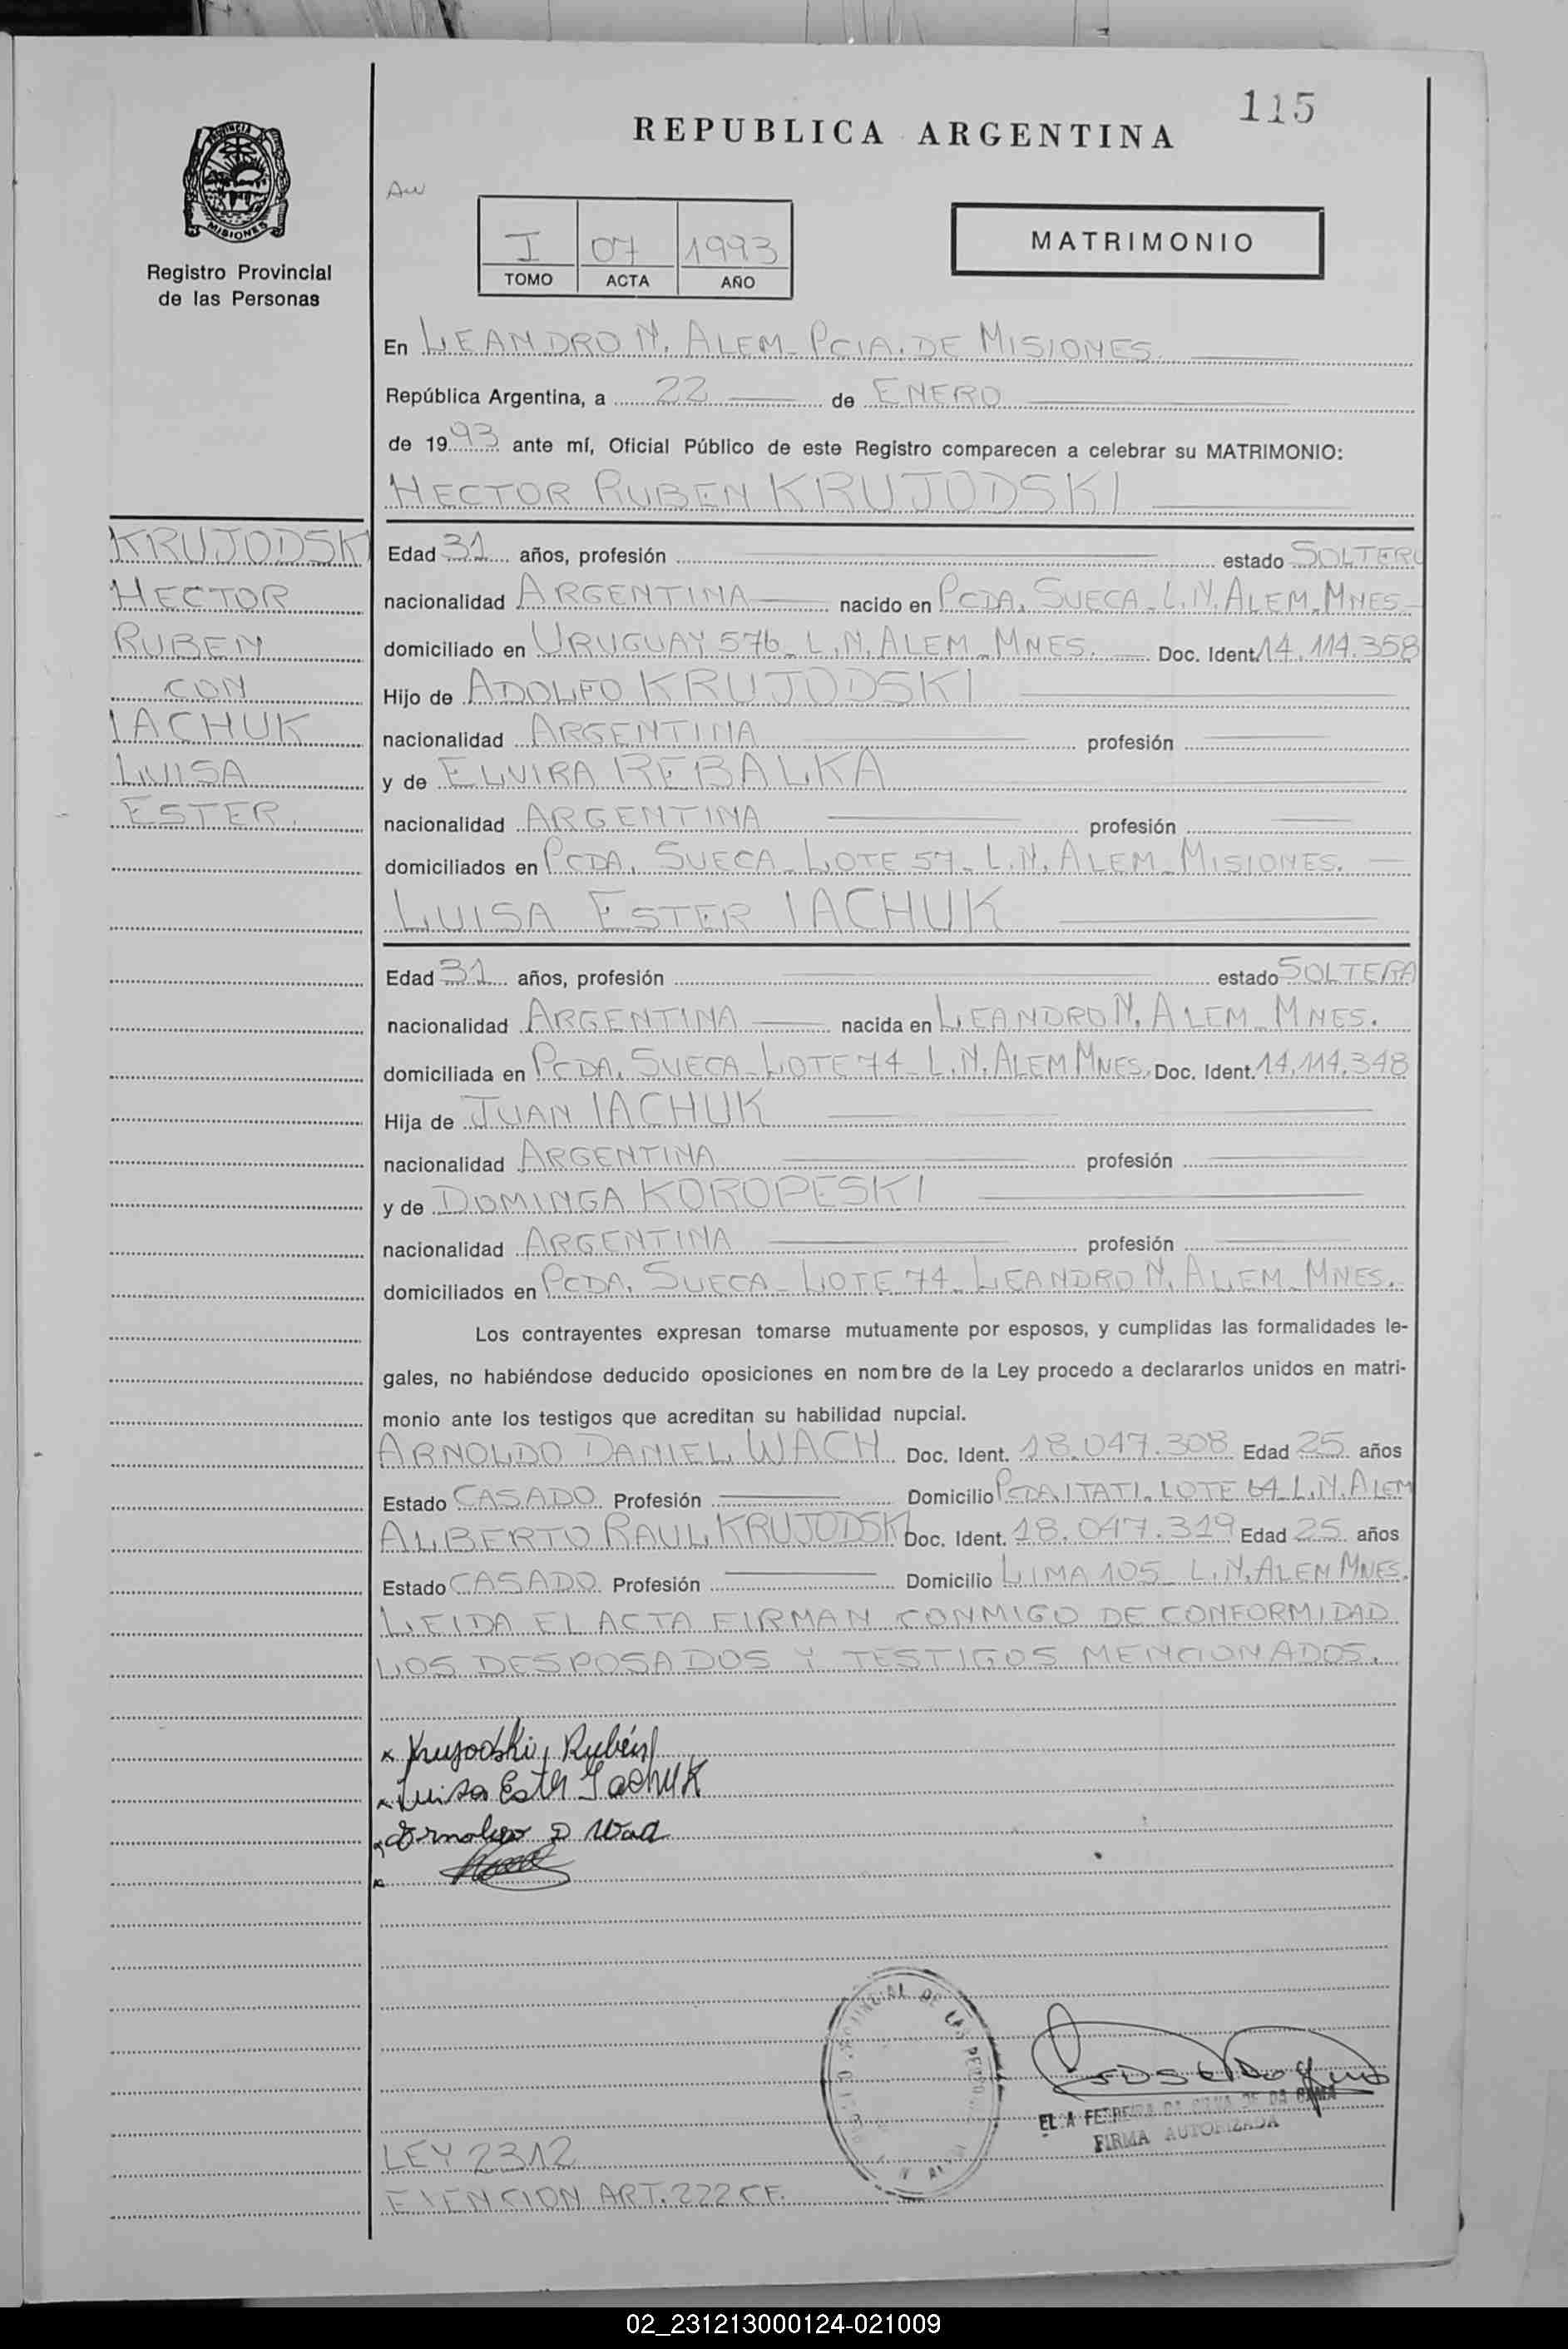 115
REPUBLICA ARGENTINA
PROVINCIA
MISIONES
Registro Provincial
de las Personas
I 07 1993
TOMO ACTA AÑO
MATRIMONIO
En LEANDRO N. ALEM - PCIA. DE MISIONES
República Argentina, a 22 de ENERO
de 1993 ante mí, Oficial Público de este Registro comparecen a celebrar su MATRIMONIO:
HECTOR RUBEN KRUJODSKI
KRUJODSKI
HECTOR
RUBEN
CON
IACHUK
LUISA
ESTER.
Edad 31 años, profesión estado SOLTERO
nacionalidad ARGENTINA nacido en PCDA. SUECA - L.N. ALEM - MNES
domiciliado en URUGUAY 576 - L.N. ALEM - MNES. Doc. Ident. 14.114.358
Hijo de ADOLFO KRUJODSKI
nacionalidad ARGENTINA profesión
y de ELVIRA REBALKA
nacionalidad ARGENTINA profesión
domiciliados en PCDA. SUECA - LOTE 57 - L.N. ALEM - MISIONES.
LUISA ESTER IACHUK
Edad 31 años, profesión estado SOLTERA
nacionalidad ARGENTINA nacida en LEANDRO N. ALEM - MNES.
domiciliada en PCDA. SUECA - LOTE 74 - L.N. ALEM MNES. Doc. Ident. 14.114.348
Hija de JUAN IACHUK
nacionalidad ARGENTINA profesión
y de DOMINGA KOROPESKI
nacionalidad ARGENTINA profesión
domiciliados en PCDA. SUECA - LOTE 74 - LEANDRO N. ALEM - MNES.
Los contrayentes expresan tomarse mutuamente por esposos, y cumplidas las formalidades le-
gales, no habiéndose deducido oposiciones en nombre de la Ley procedo a declararlos unidos en matri-
monio ante los testigos que acreditan su habilidad nupcial.
ARNOLDO DANIEL WACH Doc. Ident. 18.047.308 Edad 25 años
Estado CASADO Profesión Domicilio PCDA ITATI - LOTE 64 - L.N. ALEM
ALBERTO RAUL KRUJODSKI Doc. Ident. 18.047.319 Edad 25 años
Estado CASADO Profesión Domicilio LIMA 105 - L.N. ALEM MNES.
LEIDA EL ACTA FIRMAN CONMIGO DE CONFORMIDAD
LOS DESPOSADOS Y TESTIGOS MENCIONADOS.
x Krujodski, Rubén
x Luisa Ester Iachuk
x Arnoldo D Wach
x
FIRMA AUTORIZADA
LEY 2312
EXENCION ART. 222 CF.
02_231213000124-021009